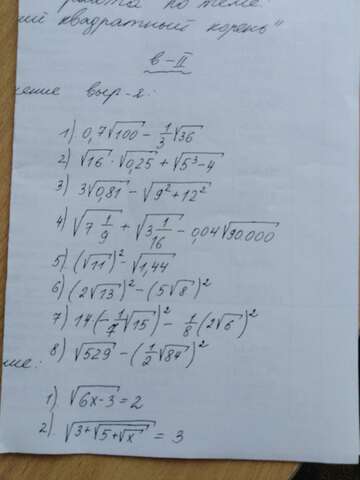 работа по теме:
ий квадратный корень"
в-II
ение выр-я:
1) 0,7√100 - 1/3 √36
2) √16 · √0,25 + √(5³-4)
3) 3√0,81 - √(9²+12²)
4) √(7 1/9) + √(3 1/16) - 0,04√90.000
5) (√11)² - √1,44
6) (2√13)² - (5√8)²
7) 14(-1/7 √15)² - 1/8 (2√6)²
8) √529 - (1/2 √84)²
ие:
1) √(6x-3) = 2
2) √(3+√(5+√x)) = 3